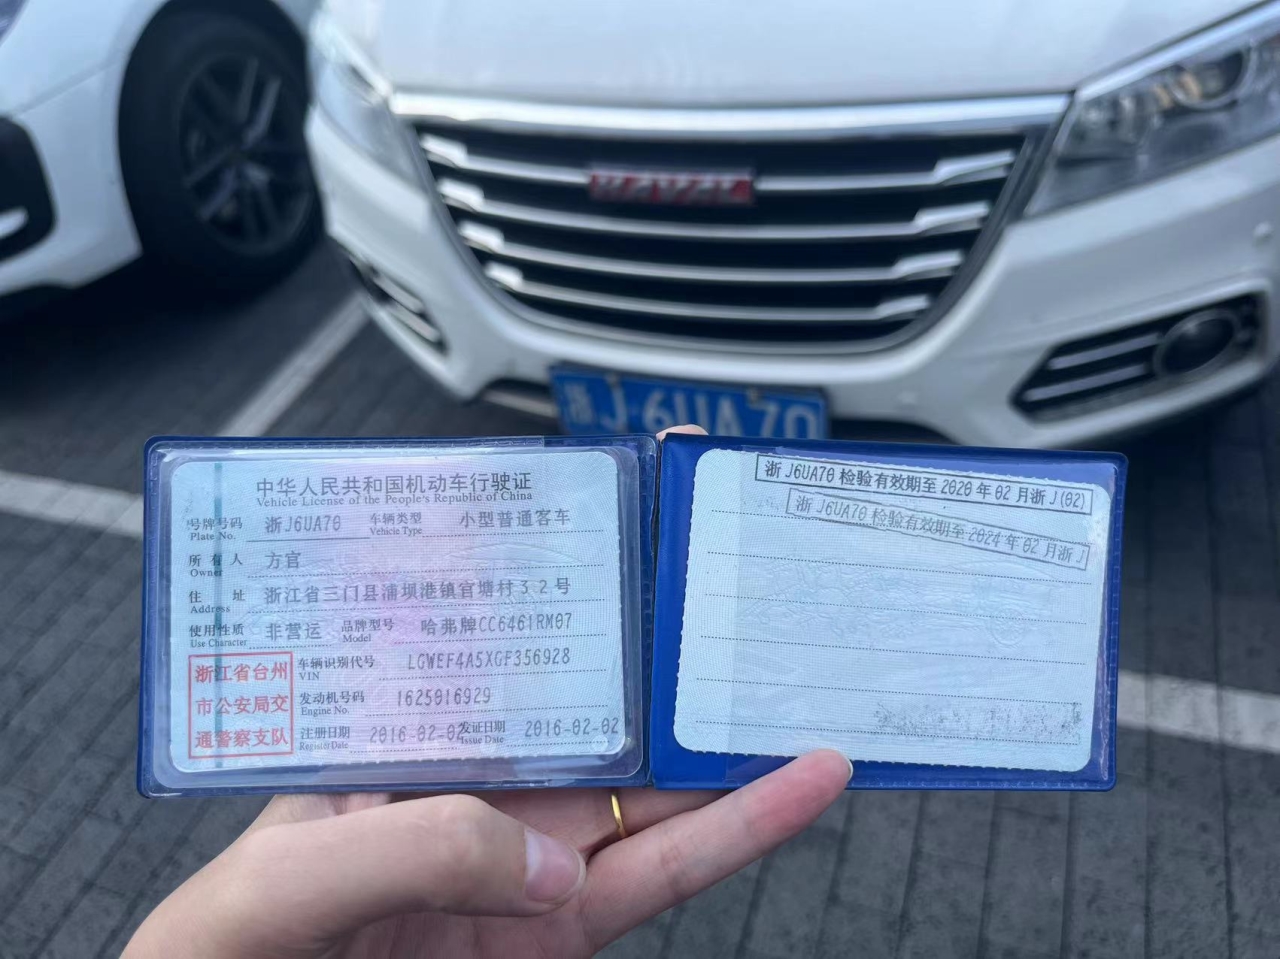 HAVAL
浙J·6UA70
中华人民共和国机动车行驶证
Vehicle License of the People's Republic of China
号牌号码 浙J6UA70 车辆类型 小型普通客车
Plate No. Vehicle Type
所有人 方官
Owner
住址 浙江省三门县浦坝港镇官塘村32号
Address
使用性质 非营运 品牌型号 哈弗牌CC6461RM07
Use Character Model
浙江省台州
市公安局交
通警察支队
车辆识别代号 LGWEF4A5XGF356928
VIN
发动机号码 1625016929
Engine No.
注册日期 2016-02-02 发证日期 2016-02-02
Register Date Issue Date
浙J6UA70 检验有效期至2020年02月浙J(02)
浙J6UA70 检验有效期至2024年02月浙J